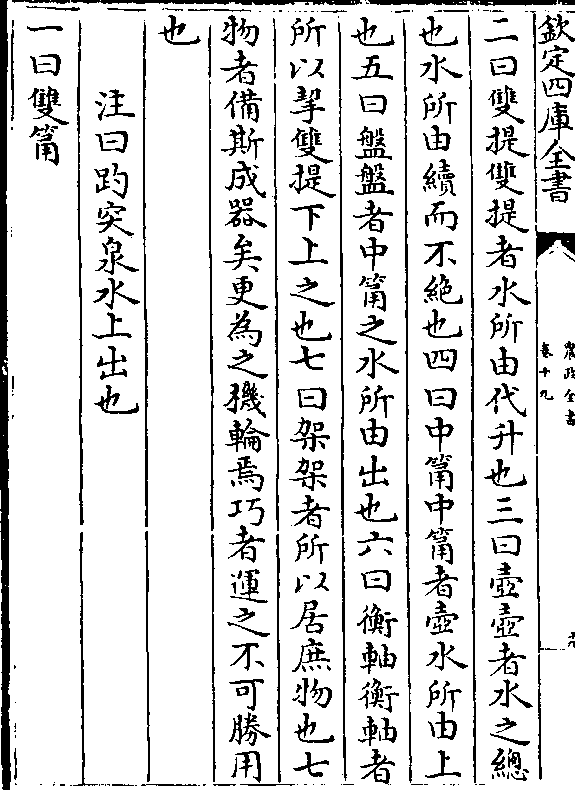 欽定四庫全書
農政全書
卷十九
二曰雙提雙提者水所由代升也三曰壺壺者水之總
也水所由續而不絶也四曰中筩中筩者壺水所由上
也五曰盤盤者中筩之水所由出也六曰衡軸衡軸者
所以挈雙提下上之也七曰架架者所以居庶物也七
物者備斯成器矣更為之機輪焉巧者運之不可勝用
也
注曰趵突泉水上出也
一曰雙筩